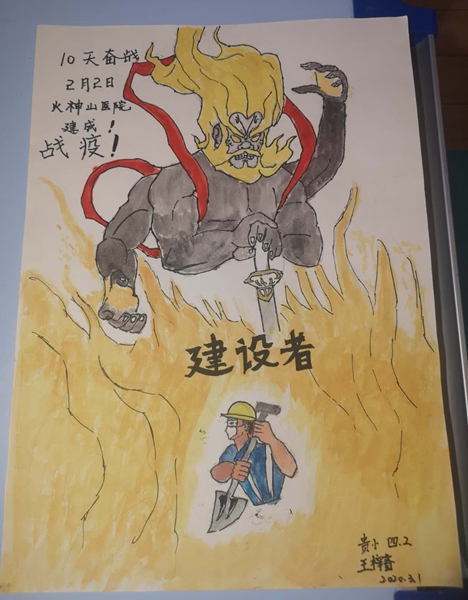 10天奋战
2月2日
火神山医院
建成!
战疫!
建设者
贵小 四.2
2020.3.1